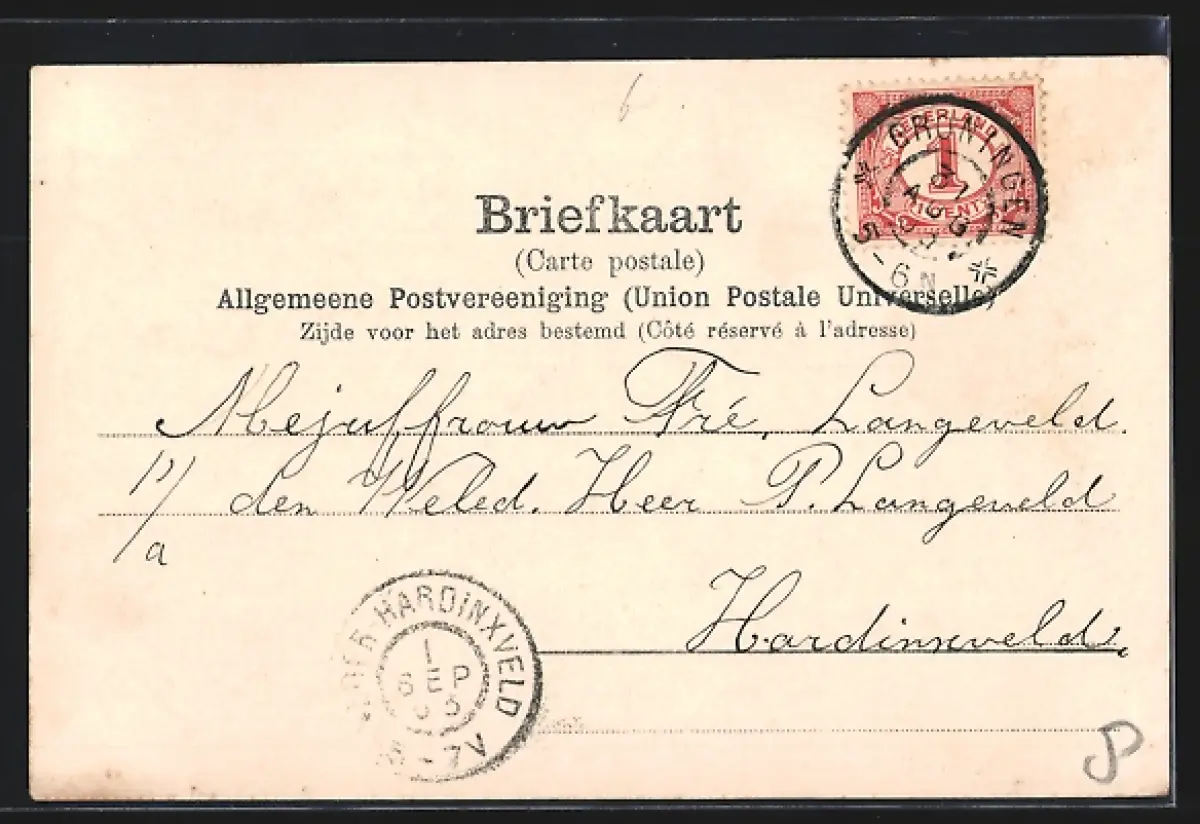 NEDERLAND
1
CENT
GRONINGEN
5-6N
Briefkaart
(Carte postale)
Allgemeene Postvereeniging (Union Postale Universelle)
Zijde voor het adres bestemd (Côté réservé à l'adresse)
Mejuffrouw Fré, Langeveld.
p/a den Weled. Heer P. Langeveld
Hardinxveld.
HARDINXVELD
1
SEP
03
-7V